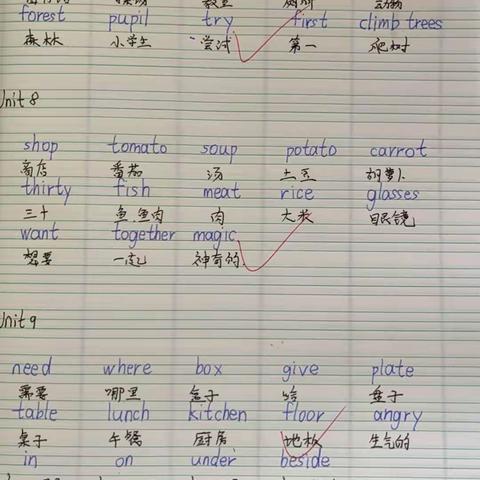 forest pupil try first climb trees
森林 小学生 尝试 第一 爬树
Unit 8
shop tomato soup potato carrot
商店 番茄 汤 土豆 胡萝卜
thirty fish meat rice glasses
三十 鱼 鱼肉 肉 大米 眼镜
want together magic
想要 一起 神奇的
Unit 9
need where box give plate
需要 哪里 盒子 给 盘子
table lunch kitchen floor angry
桌子 午餐 厨房 地板 生气的
in on under beside